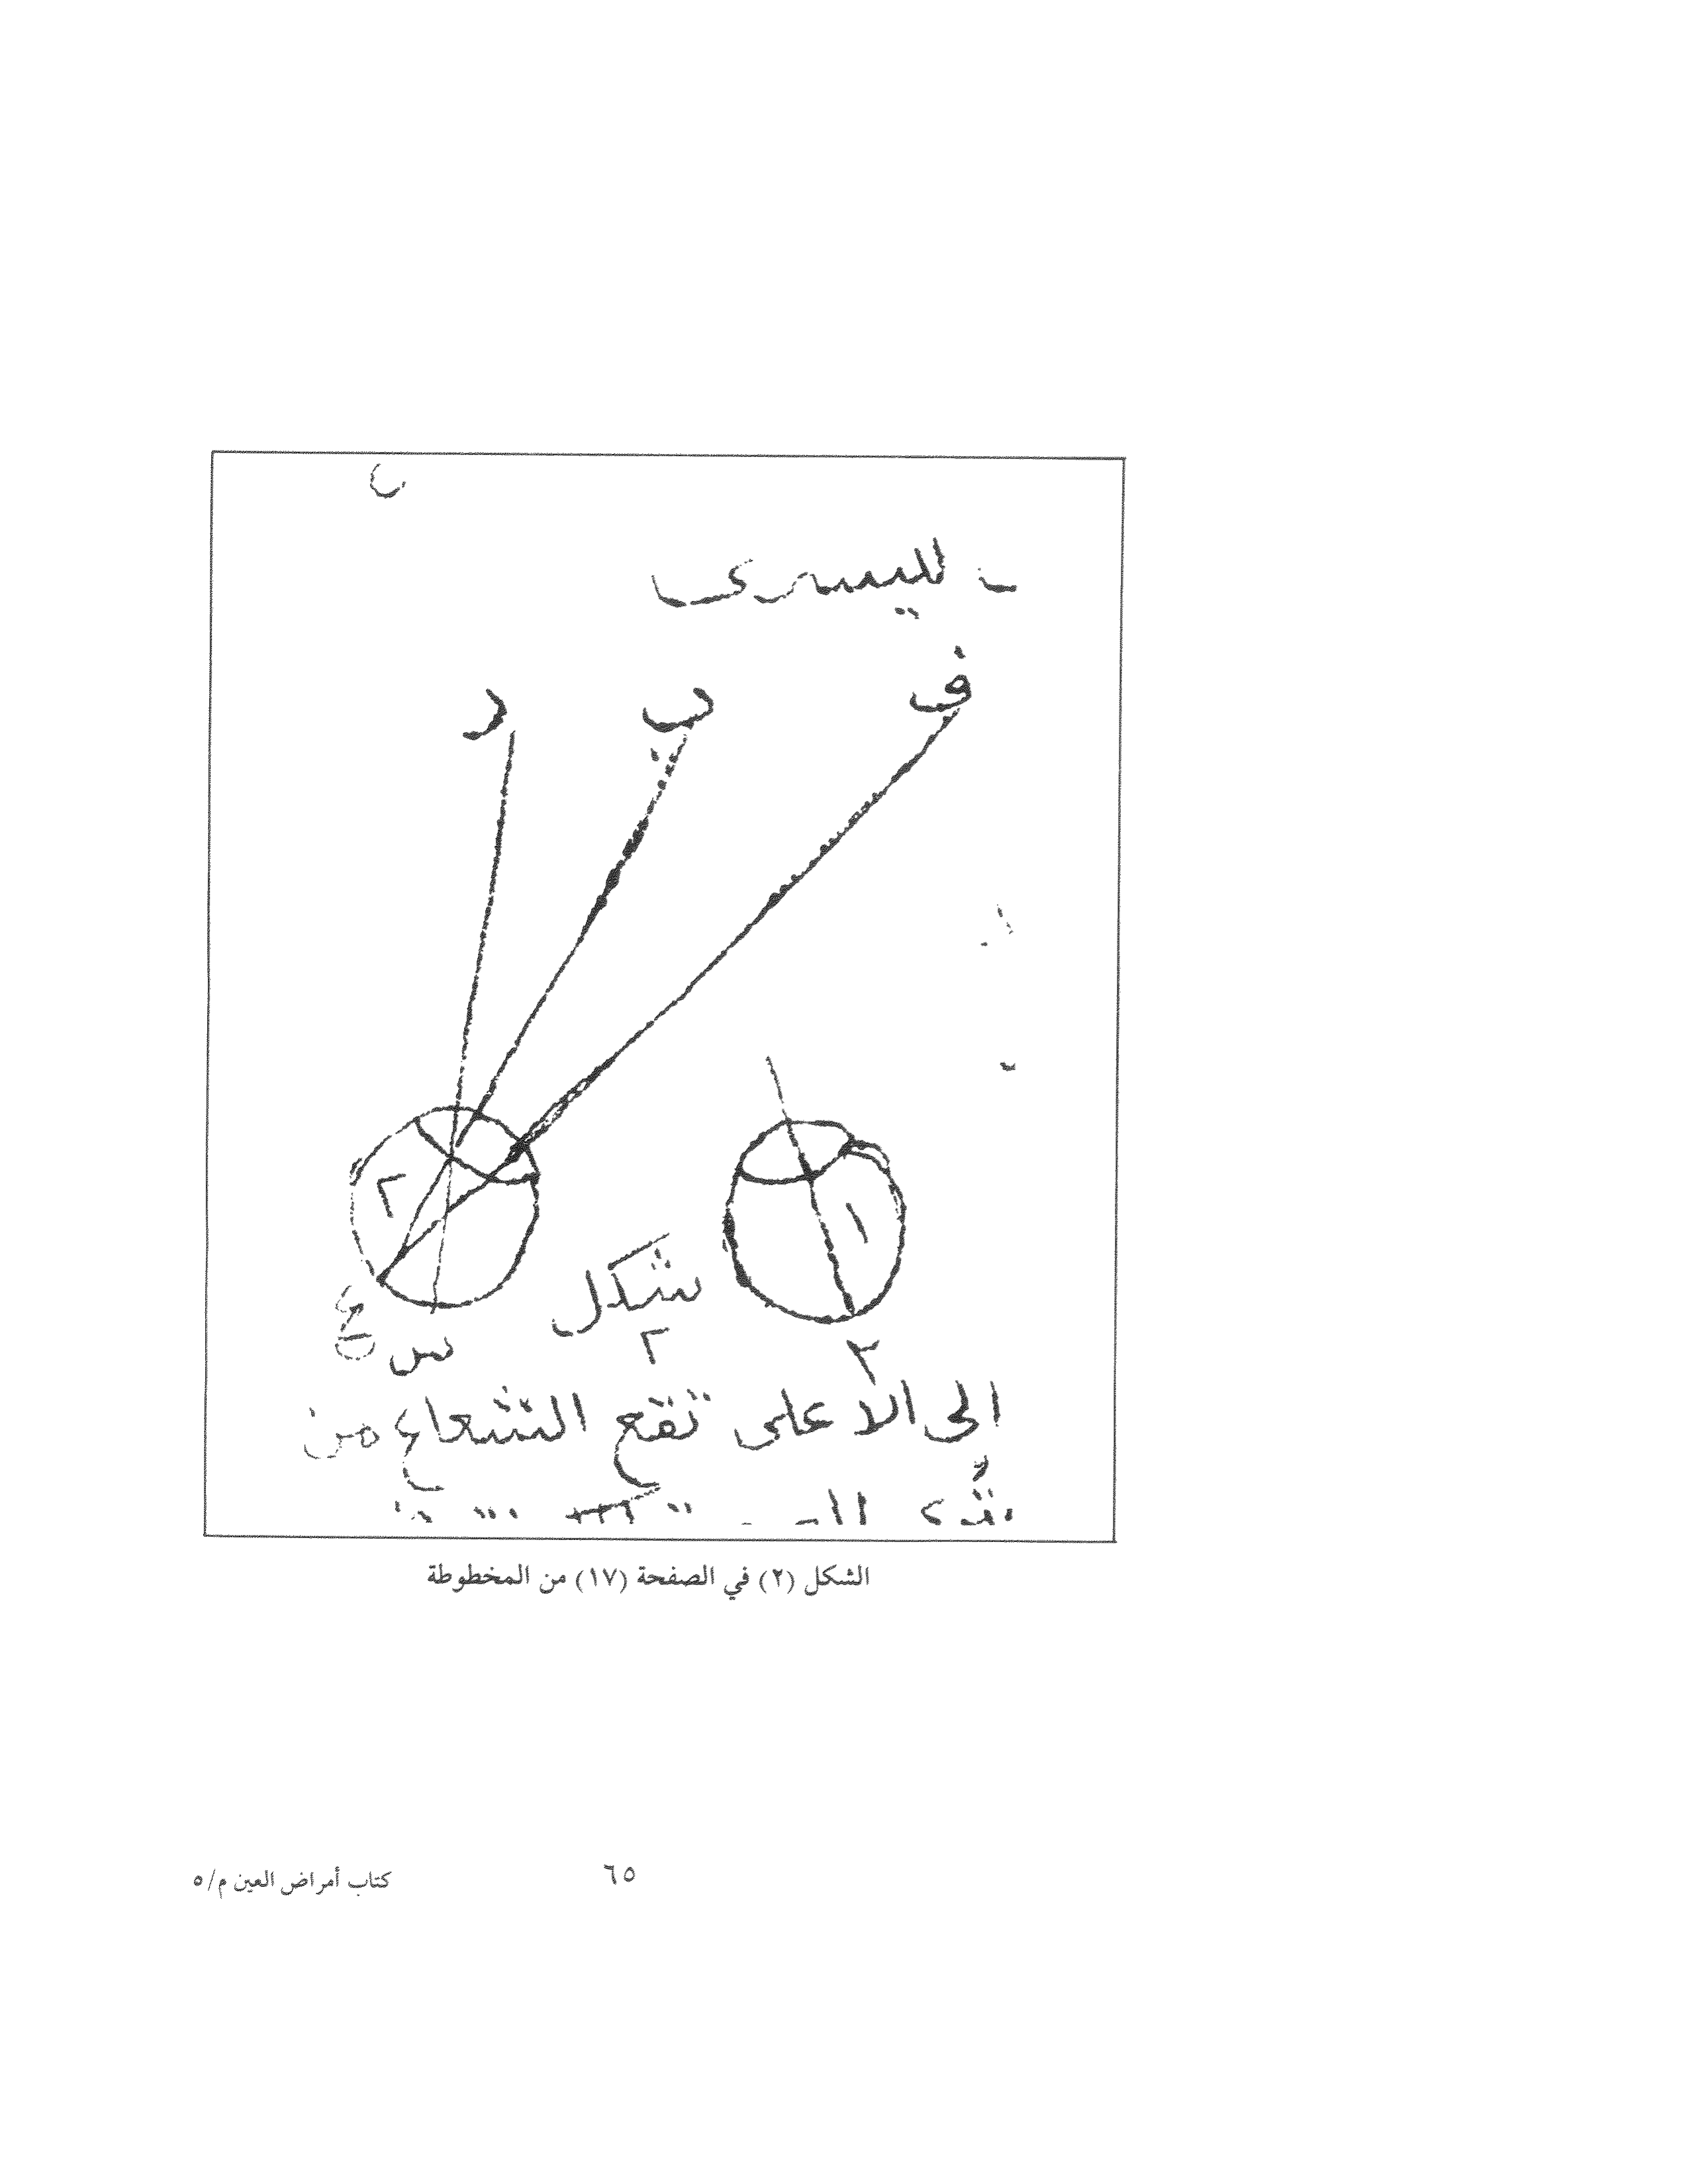 لليسرى
ف ب د
٢ ١
شكل
٢ ٣
س ع
الى الاعلى تقع الشعاع من
الشكل (٢) في الصفحة (١٧) من المخطوطة
٦٥
كتاب أمراض العين م/٥